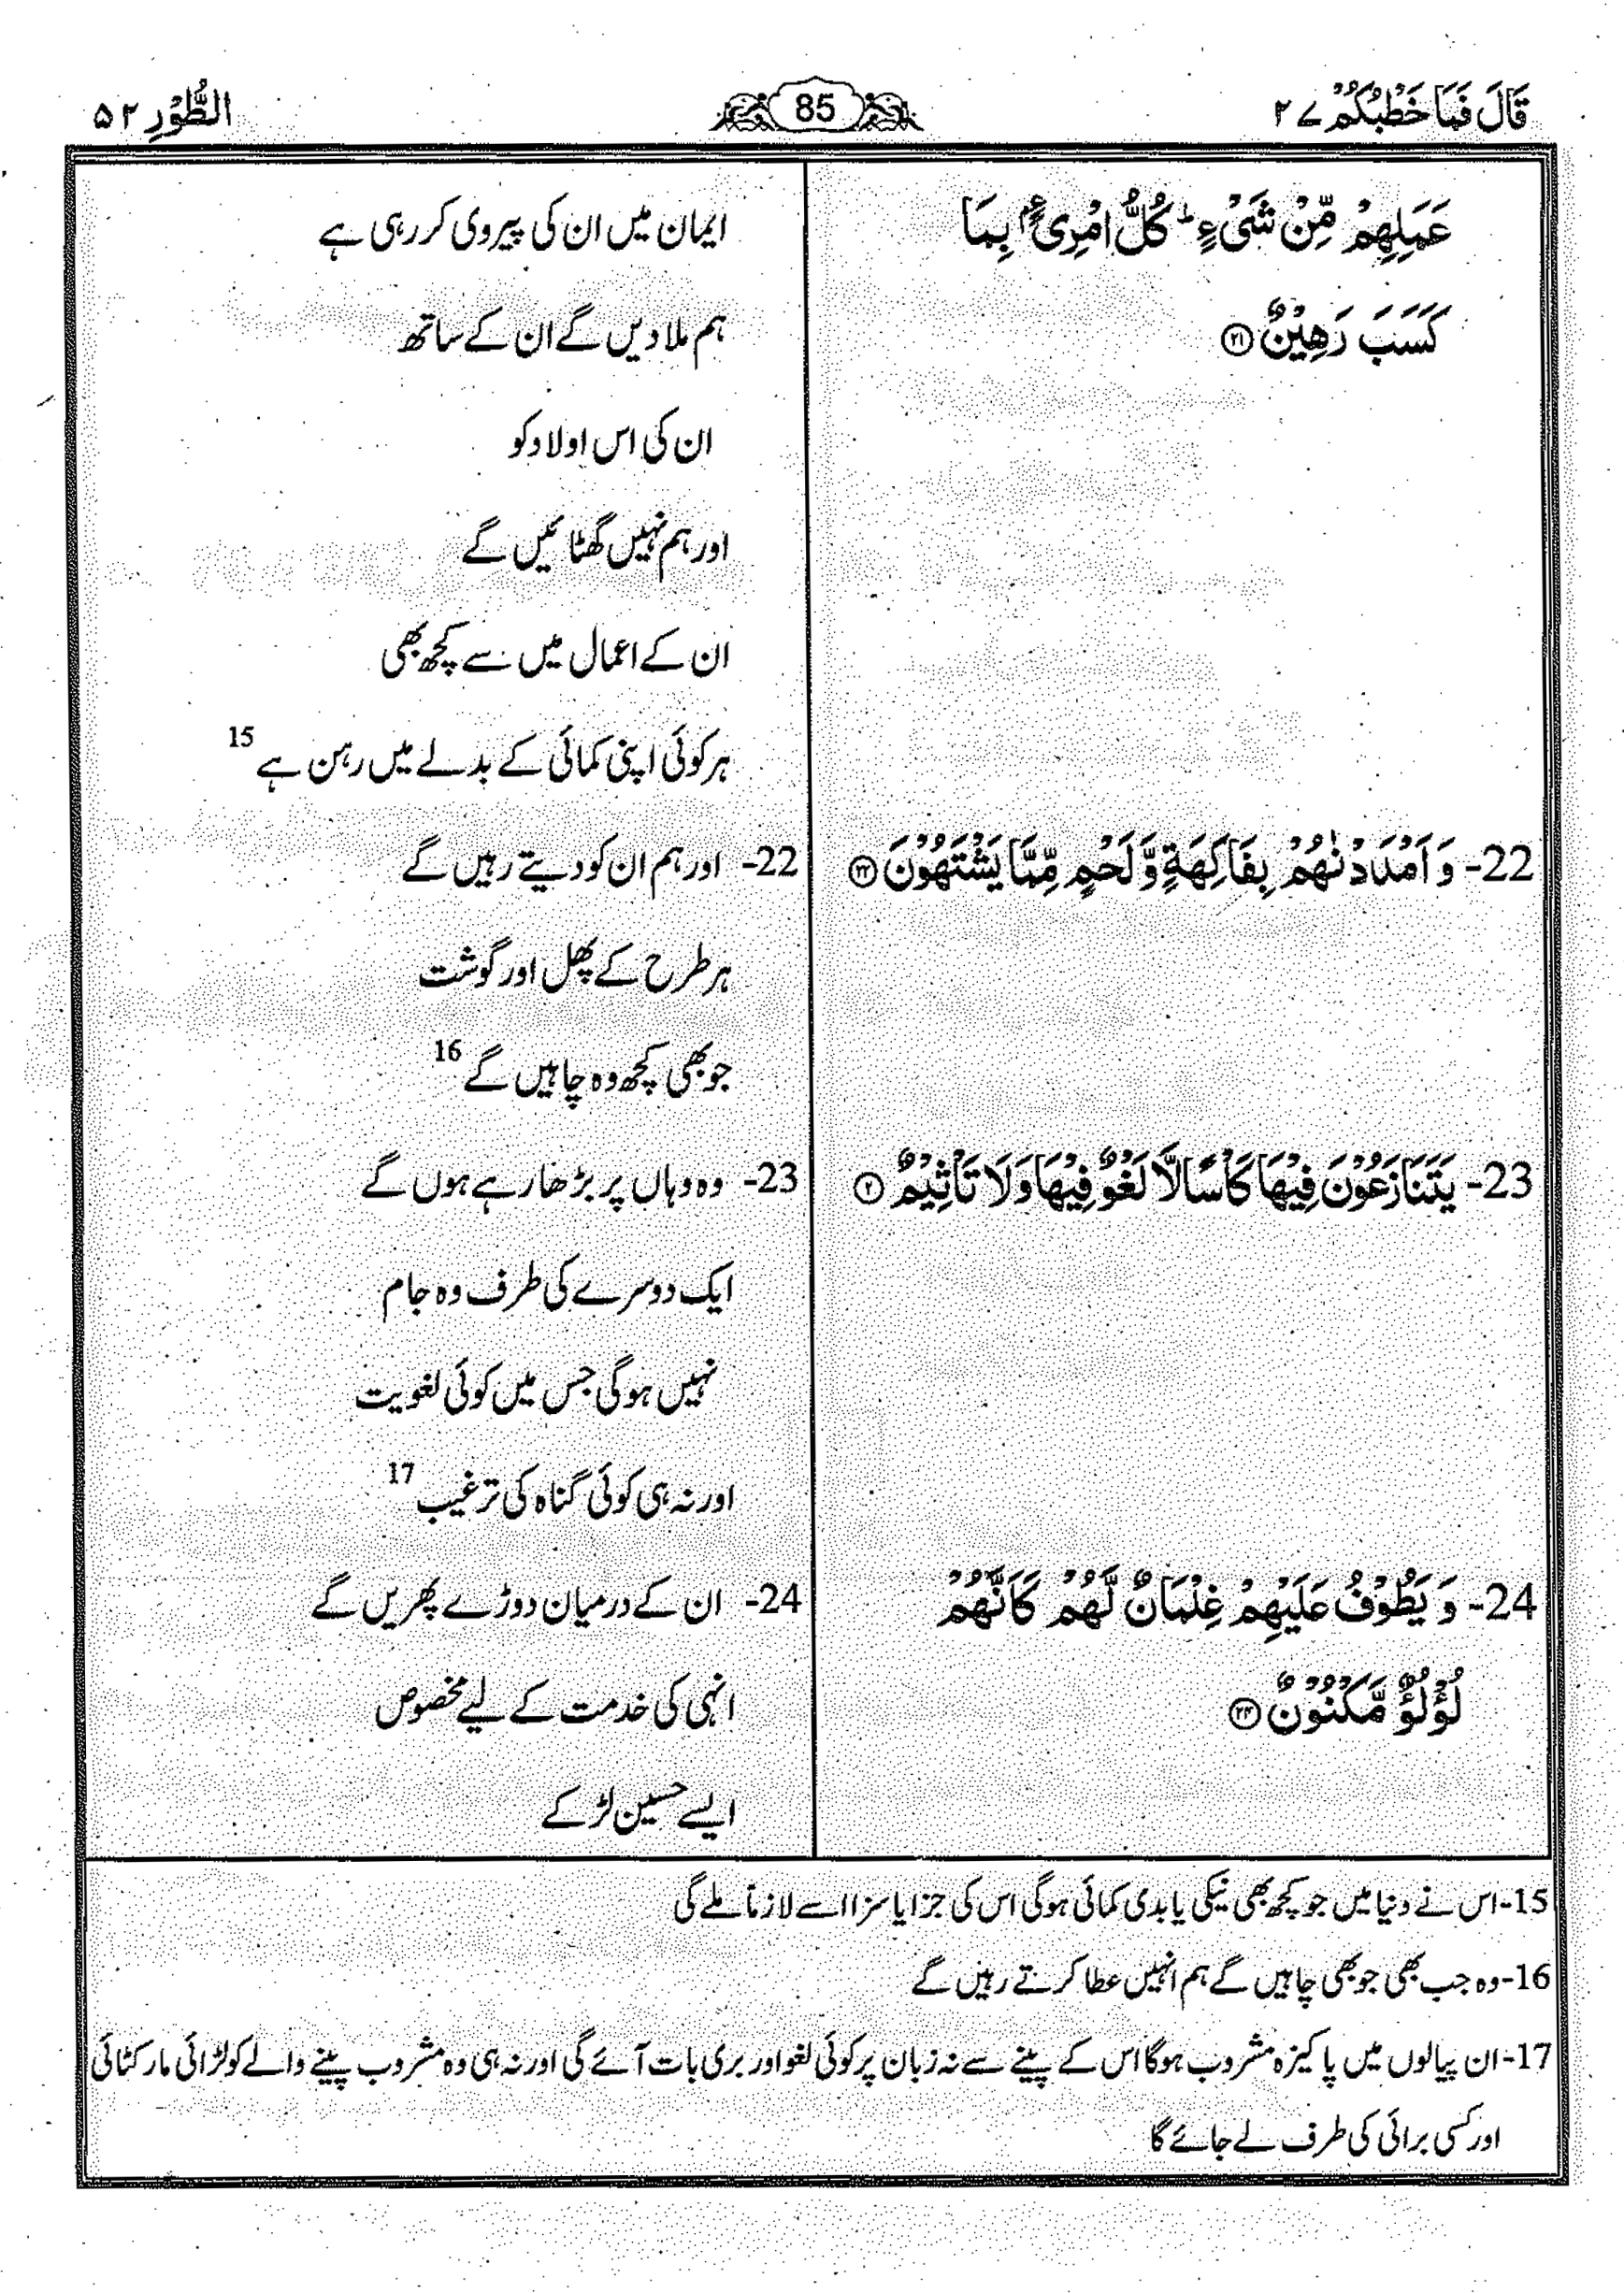 قَالَ فَمَا خَطْبُكُمْ ٢٧
85
الطُّوْرِ ٥٢
عَمَلِهِمْ مِّنْ شَیْءٍ ؕ كُلُّ امْرِیٴٍۭ بِمَا
كَسَبَ رَهِيْنٌ ﴿۲۱﴾
22- وَ اَمْدَدْنٰهُمْ بِفَاكِهَةٍ وَّ لَحْمٍ مِّمَّا يَشْتَهُوْنَ ﴿۲۲﴾
23- يَتَنَازَعُوْنَ فِيْهَا كَاْسًا لَّا لَغْوٌ فِيْهَا وَ لَا تَاْثِيْمٌ ﴿۲﴾
24- وَ يَطُوْفُ عَلَيْهِمْ غِلْمَانٌ لَّهُمْ كَاَنَّهُمْ
لُؤْلُؤٌ مَّكْنُوْنٌ ﴿۲۴﴾
ایمان میں ان کی پیروی کر رہی ہے
ہم ملا دیں گے ان کے ساتھ
ان کی اس اولاد کو
اور ہم نہیں گھٹائیں گے
ان کے اعمال میں سے کچھ بھی
ہر کوئی اپنی کمائی کے بدلے میں رہن ہے 15
22- اور ہم ان کو دیتے رہیں گے
ہر طرح کے پھل اور گوشت
جو بھی کچھ وہ چاہیں گے 16
23- وہ وہاں پر بڑھا رہے ہوں گے
ایک دوسرے کی طرف وہ جام
نہیں ہوگی جس میں کوئی لغویت
اور نہ ہی کوئی گناہ کی ترغیب 17
24- ان کے درمیان دوڑے پھریں گے
انہی کی خدمت کے لیے مخصوص
ایسے حسین لڑکے
15-اس نے دنیا میں جو کچھ بھی نیکی یا بدی کمائی ہوگی اس کی جزا یا سزا اسے لازماً ملے گی
16-وہ جب بھی جو بھی چاہیں گے ہم انہیں عطا کرتے رہیں گے
17-ان پیالوں میں پاکیزہ مشروب ہوگا اس کے پینے سے نہ زبان پر کوئی لغو اور بری بات آئے گی اور نہ ہی وہ مشروب پینے والے کو لڑائی مار کٹائی
اور کسی برائی کی طرف لے جائے گا